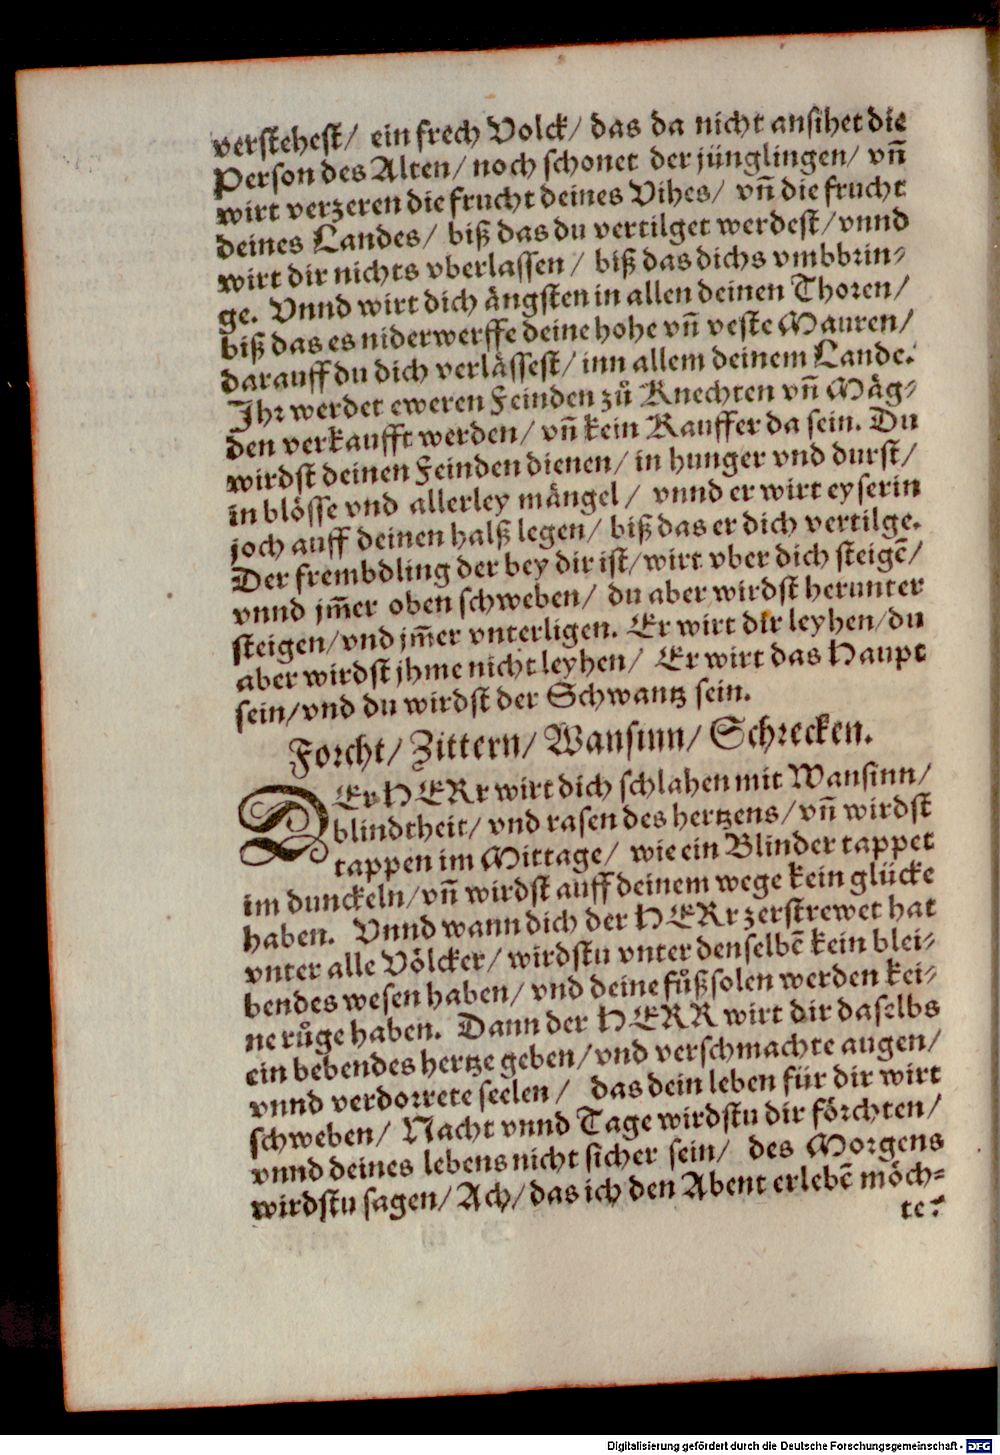 verstehest/ ein frech Volck/ das da nicht ansihet die
Person des Alten/ noch schonet der jünglingen/ vñ
wirt verzeren die frucht deines Vihes/ vñ die frucht
deines Landes/ biß das du vertilget werdest/ vnnd
wirt dir nichts vberlassen/ biß das dichs vmbbrin-
ge. Vnnd wirt dich ängsten in allen deinen Thoren/
biß das es niderwerffe deine hohe vñ veste Mauren/
darauff du dich verlässest/ inn allem deinem Lande.
Ihr werdet eweren Feinden zů Knechten vñ Mäg-
den verkaufft werden/ vñ kein Kauffer da sein. Du
wirdst deinen Feinden dienen/ in hunger vnd durst/
in blösse vnd allerley mängel/ vnnd er wirt eyserin
joch auff deinen halß legen/ biß das er dich vertilge.
Der frembdling der bey dir ist/ wirt vber dich steigẽ/
vnnd jm̃er oben schweben/ du aber wirdst herunter
steigen/ vnd jm̃er vnterligen. Er wirt dir leyhen/ du
aber wirdst jhme nicht leyhen/ Er wirt das Haupt
sein/ vnd du wirdst der Schwantz sein.
Forcht/ Zittern/ Wansinn/ Schrecken.
DEr HERr wirt dich schlahen mit Wansinn/
blindtheit/ vnd rasen des hertzens/ vñ wirdst
tappen im Mittage/ wie ein Blinder tappet
im dunckeln/ vñ wirdst auff deinem wege kein glücke
haben. Vnnd wann dich der HERr zerstrewet hat
vnter alle Völcker/ wirdstu vnter denselbẽ kein blei-
bendes wesen haben/ vnd deine fůßsolen werden kei-
ne růge haben. Dann der HERR wirt dir daselbs
ein bebendes hertze geben/ vnd verschmachte augen/
vnnd verdorrete seelen/ das dein leben für dir wirt
schweben/ Nacht vnnd Tage wirdstu dir förchten/
vnnd deines lebens nicht sicher sein/ des Morgens
wirdstu sagen/ Ach/ das ich den Abent erlebẽ möch-
te?
Digitalisierung gefördert durch die Deutsche Forschungsgemeinschaft - DFG